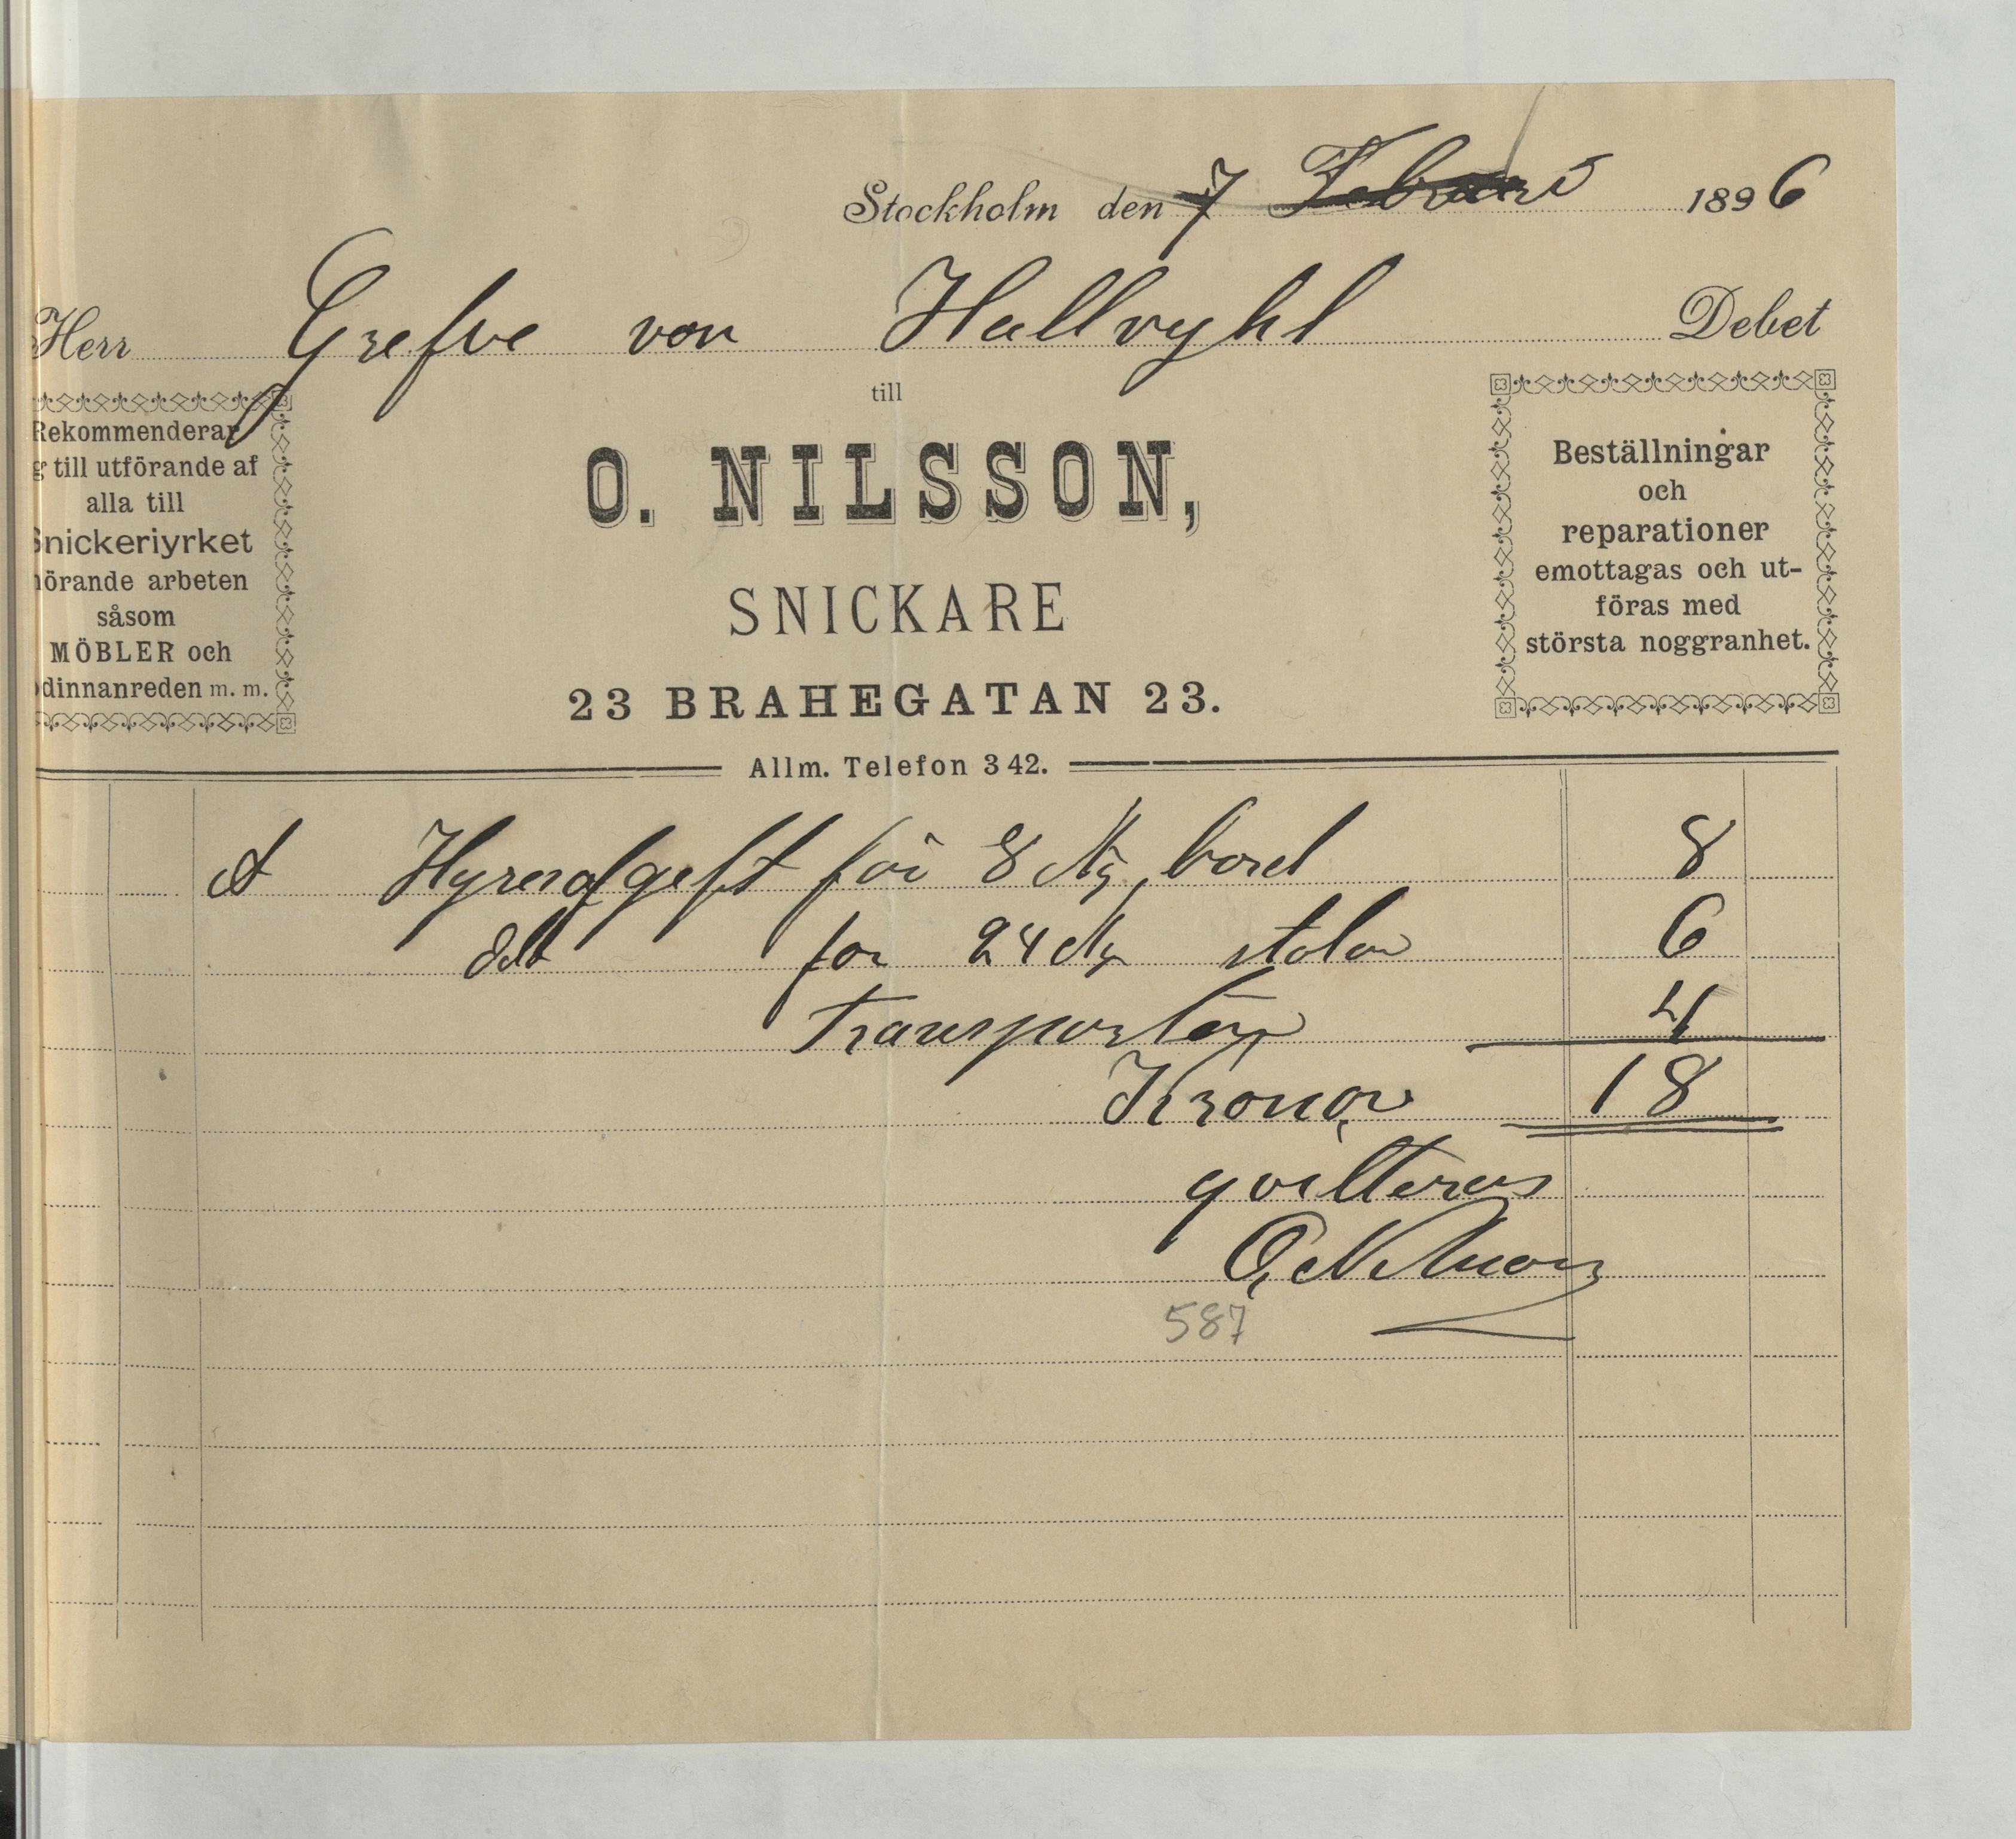 Stockholm den 7 Februari 1896
Herr Grefve von Hallvyhl Debet
till
Rekommenderar
g till utförande af
alla till
Snickeriyrket
hörande arbeten
såsom
MÖBLER och
dinnanreden m. m.
O. NILSSON,
SNICKARE
23 BRAHEGATAN 23.
Allm. Telefon 342.
Beställningar
och
reparationer
emottagas och ut-
föras med
största noggranhet.
Hyresafgeft för 8 st bord 8
för 24 st stolar 6
Transporten 4
Kronor 18
qvitteras
O. Nilsson
587